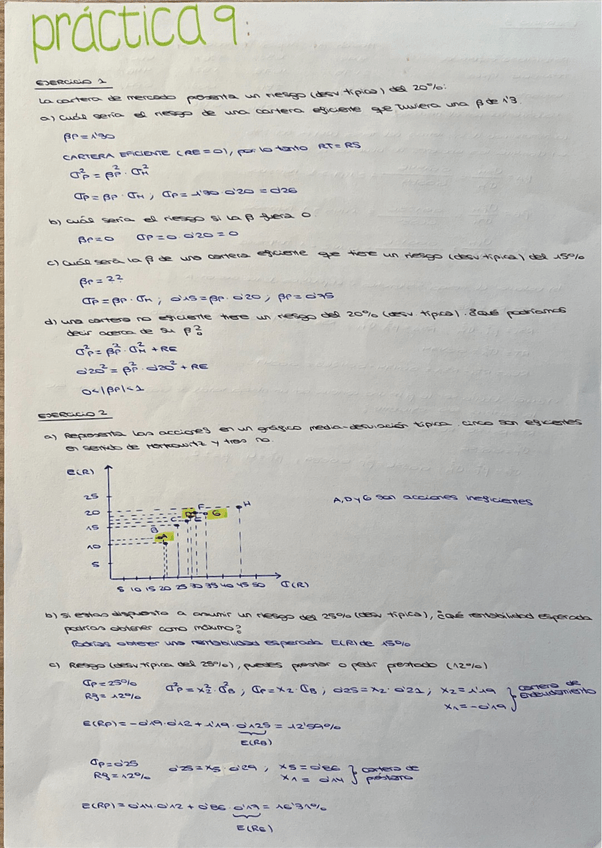 práctica 9:
EJERCICIO 1
La cartera de mercado presenta un riesgo (desv típica) del 20%:
a) Cuál sería el riesgo de una cartera eficiente que tuviera una β de 1'3.
βp = 1'30
CARTERA EFICIENTE (RE=0), por lo tanto RT = RS
σ²p = β²p · σ²M
σp = βp · σM ; σp = 1'30 · 0'20 = 0'26
b) Cuál sería el riesgo si la β fuera 0
βp = 0 σp = 0 · 0'20 = 0
c) Cuál será la β de una cartera eficiente que tiene un riesgo (desv típica) del 15%
βp = ??
σp = βp · σM ; 0'15 = βp · 0'20 ; βp = 0'75
d) una cartera no eficiente tiene un riesgo del 20% (desv típica). ¿Qué podríamos
decir acerca de su β?
σ²p = β²p · σ²M + RE
0'20² = β²p · 0'20² + RE
0 < |βp| < 1
EJERCICIO 2
a) Representa las acciones en un gráfico media-desviación típica. cinco son eficientes
en sentido de Markowitz y tres no.
E(R)
25
20
15
10
5
A
B
C
D
E
F
G
H
5 10 15 20 25 30 35 40 45 50 σ(R)
A, D y G son acciones ineficientes
b) si estas dispuesto a asumir un riesgo del 25% (desv típica), ¿Qué rentabilidad esperada
podrías obtener como máximo?
Podrías obtener una rentabilidad esperada E(R) de 15%
c) Riesgo (desv típica del 25%), puedes prestar o pedir prestado (12%)
σp = 25%
Rf = 12%
σ²p = x²2 · σ²B ; σp = x2 · σB ; 0'25 = x2 · 0'21 ; x2 = 1'19
x1 = -0'19
cartera de
Endeudamiento
E(Rp) = -0'19 · 0'12 + 1'19 · 0'125 = 12'59%
E(RB)
σp = 0'25
Rf = 12%
0'25 = x5 · 0'29 ; x5 = 0'86
x1 = 0'14
cartera de
préstamo
E(Rp) = 0'14 · 0'12 + 0'86 · 0'17 = 16'31%
E(RE)